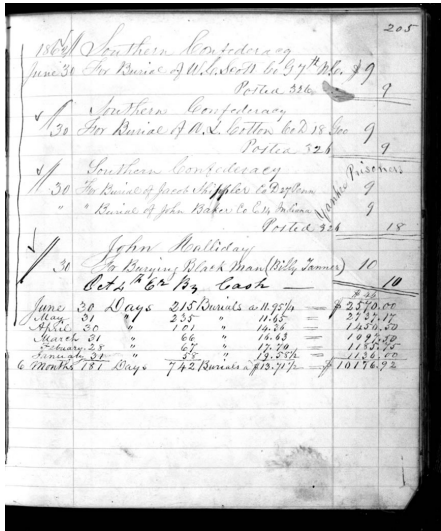 205
1863 Southern Confederacy
June 30 For Burial of W. C. Scott Co G 7th N.C. $ 9
Posted 326 9
Southern Confederacy
30 For Burial of A. L. Cotton Co D 18 Geo 9
Posted 326 9
Southern Confederacy
Yankee Prisoners
30 For Burial of Jacob Shippler Co D 27 Conn 9
" " Burial of John Baker Co E 14 Indiana 9
Posted 326 18
John Halliday
30 For Burying Black Man (Billy Tanner) 10
Oct 4th Cr By Cash — 10
June 30 Days 215 Burials a 11.95½ = $ 2570.00
May 31 " 235 " 11.65 = 2737.17
April 30 " 101 " 14.36 = 1450.50
March 31 " 66 " 16.63 = 1097.50
Febuary 28 " 67 " 17.70 = 1185.75
January 31 " 58 " 19.58½ = 1136.00
6 Months 181 Days 742 Burials a $13.71½ = $ 10176.92